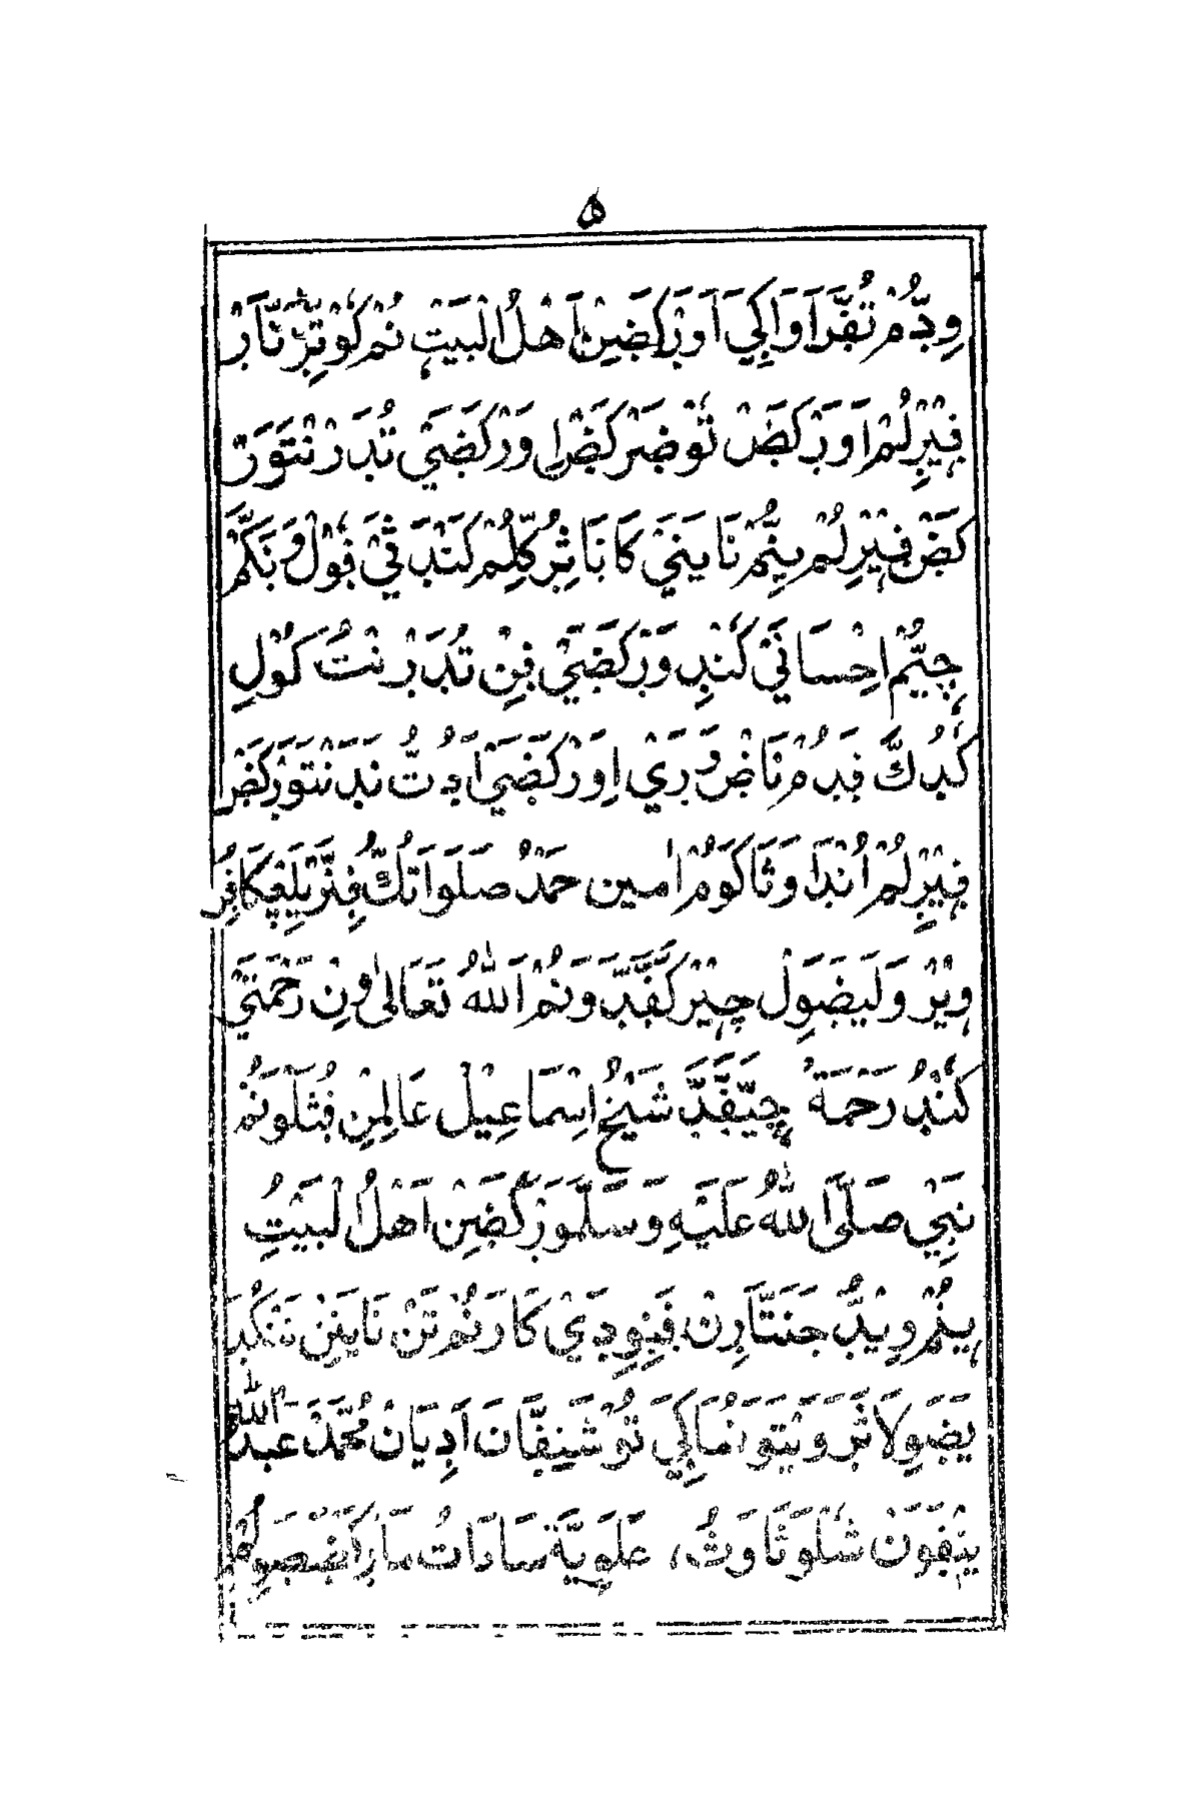 ٥
وِدُّمْ تُفَّرَاوَاكِيَ اَوَرْكَضِنْ اَهْلُ الْبَيْتِ نُمْ كُوتِرْتَّارْ
فٖيرِلُمْ اَوَرْكَضْ تُوْضَرْكَضْ اِوَرْكَضَيْ تُدَرْنْتَوَرْ
كَضْ فٖيرِلُمْ يِنُّمْ نَايَنَيْ كَانَاثِرُكِّلُمْ كَنْدَ ثَيْ فُوْلْ وَنَكَّمْ
چِيُّمْ اِحْسَانَيْ كُنْدِوَرْكَضَيْ فِنْ تُدَرْنْتُ كُوْلِ
كُدُكَّ فَدُمْ نَاضْ وَرَيْ اِوَرْكَضَيْ اَدُتُّ نَدَنْتَوَرْكَضْ
فٖيرِلُمْ اُنْدَاوَثَاكَوُمْ اٰمين حَمْدُ صَلَوَاتُكُّ فِنَّرْ يِلَيْكَافِرُ
وٖيرْ وَلَيضَوِلْ چٖيرْكَفَّدَّوَنُمْ اَللّٰهُ تَعَالٰى وِنْ رَحْمَتَيْ
كُنْدُ رَحْمَةْ چِيَّفَّدَّ شَيْخْ اِسْمَاعِيْلْ عَالِمِنْ فُثَلْوَنُمْ
نَبِيْ صَلَّى اللّٰهُ عَلَيْهِ وَسَلَّمَوَرْكَضِنْ اَهْلُ الْبَيْتِ
يِنُمْ وٖيدُّ جَنَتَّارِنْ فَنِوِدَيْ كَارَنُمْ تَنْ نَايَنِنْ تَنْكُدَ
يَضَوِلَاثَرْوَيْتَوَنُمَاكِيَ تُوْشَنِفَّانَ اَدِيَانْ مُحَمَّدْ عَبْدُ اللّٰه
يٖنْفَوَنْ شُلْوَثَاوَثُ، عَلَوِيَّة سَادَاتُ مَارْكَضْضِلُمْ